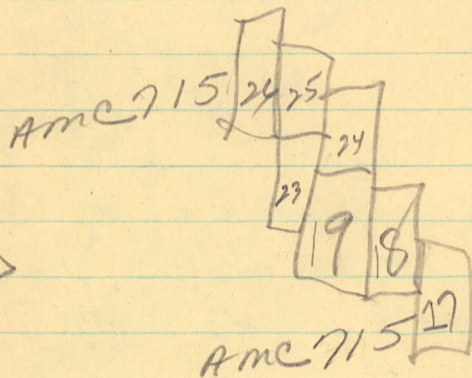 AMC715 26 25
24
23
19 18
AMC715 17